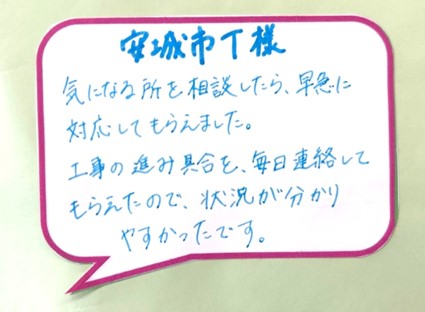 安城市T様
気になる所を相談したら、早急に
対応してもらえました。
工事の進み具合を、毎日連絡して
もらえたので、状況が分かり
やすかったです。